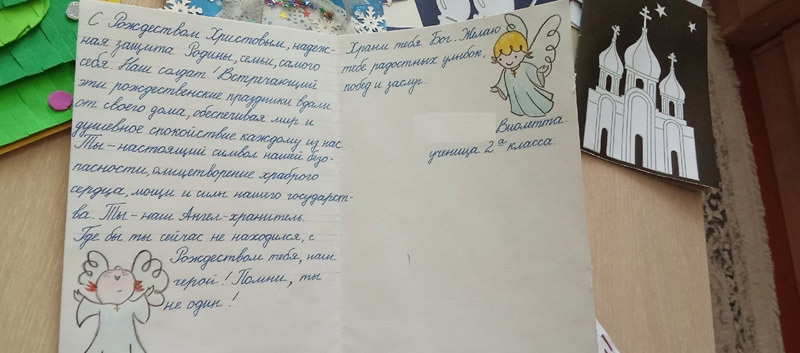 С Рождеством Христовым, надеж-
ная защита Родины, семьи, самого
себя. Наш солдат! Встречающий
эти рождественские праздники вдали
от своего дома, обеспечивая мир и
душевное спокойствие каждому из нас.
Ты - настоящий символ нашей безо-
пасности, олицетворение храброго
сердца, мощи и силы нашего государст-
ва. Ты - наш Ангел-хранитель.
Где бы ты сейчас не находился, с
Рождеством тебя, наш
герой! Помни, ты
не один!
Храни тебя Бог. Желаю
тебе радостных улыбок,
побед и заслуг.
Виолетта.
ученица 2а класса.